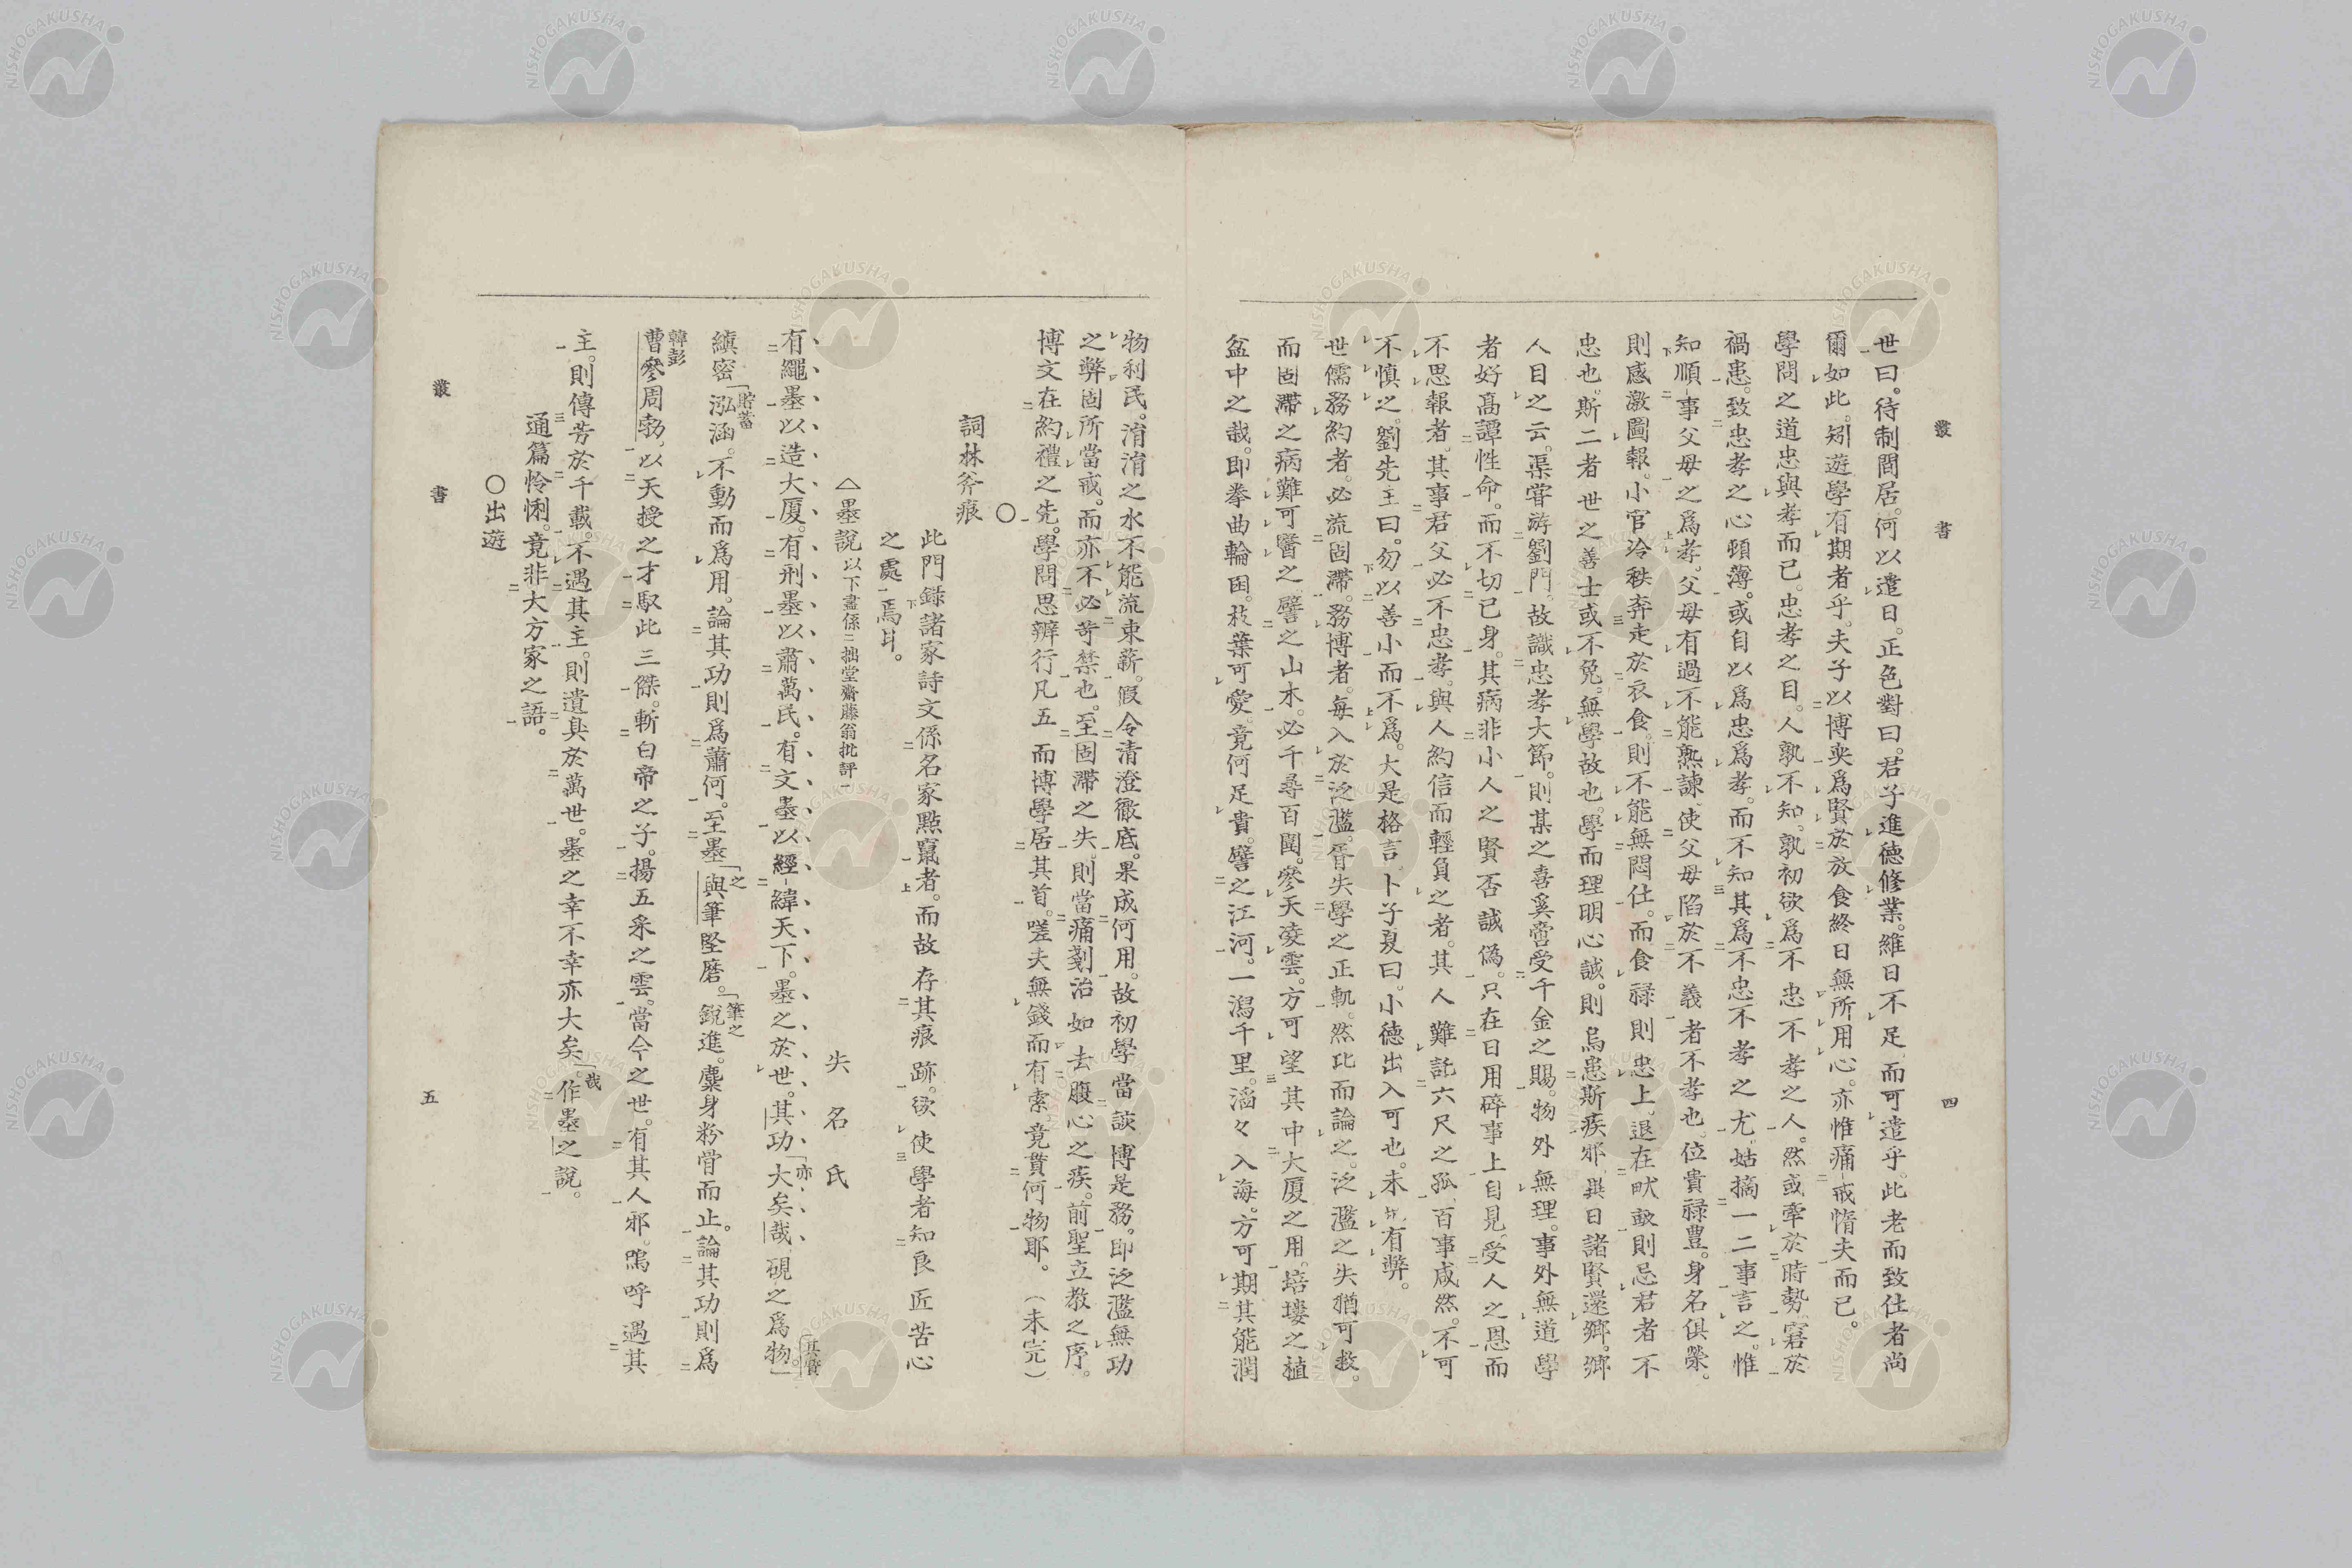 叢書 四
世曰。待制閒居。何以遣日。正色對曰。君子進德修業。維日不足。而可遣乎。此老而致仕者尚
爾如此。矧遊學有期者乎。夫子以博奕爲賢於放食終日無所用心。亦惟痛戒惰夫而已。
學問之道忠與孝而已。忠孝之目。人孰不知。孰初欲爲不忠不孝之人。然或牽於時勢。窘於
禍患。致忠孝之心頓薄。或自以爲忠爲孝。而不知其爲不忠不孝之尤。姑摘一二事言之。惟
知順事父母之爲孝。父母有過不能熟諫。使父母陷於不義者不孝也。位貴祿豊。身名俱榮。
則感激圖報。小官冷秩奔走於衣食。則不能無悶仕。而食祿則忠上。退在畎畝則忌君者不
忠也。斯二者世之善士或不免。無學故也。學而理明心誠。則烏患斯疾邪。異日諸賢還鄉。鄉
人目之云。渠嘗游劉門。故識忠孝大節。則某之喜奚啻受千金之賜。物外無理。事外無道學
者好高譚性命。而不切己身。其病非小人之賢否誠僞。只在日用碎事上自見。受人之恩而
不思報者。其事君父必不忠孝。與人約信而輕負之者。其人難託六尺之孤。百事咸然。不可
不愼之。劉先主曰。勿以善小而不爲。大是格言。卜子夏曰。小德出入可也。未有弊。
世儒務約者。必流固滯。務博者。每入於泛濫。胥失學之正軌。然比而論之。泛濫之失猶可救。
而固滯之病難可醫之。譬之山木。必千尋百圍。參天凌雲。方可望其中大厦之用。培塿之植
盆中之哉。即拳曲輪囷。枝葉可愛。竟何足貴。譬之江河。一瀉千里。滔々入海。方可期其能潤
物利民。涓涓之水不能流束薪。假令清澄徹底。果成何用。故初學當談博是務。即泛濫無功
之弊固所當戒。而亦不必苛禁也。至固滯之失。則當痛剗治如去腹心之疾。前聖立教之序。
博文在約禮之先。學問思辨行凡五而博學居其首。嗟夫無錢而有索竟貫何物耶。(未完)
○
詞林斧痕
此門錄諸家詩文係名家點竄者。而故存其痕跡。欲使學者知良匠苦心
之處焉耳。
△墨說以下盡係拙堂齋藤翁批評 失名氏
有繩墨以造大厦。有刑墨以肅萬民。有文墨以經緯天下。墨之於世。其功「亦大矣哉硯之爲物。「其質
縝密「貯蓄泓涵。不動而爲用。論其功則爲蕭何。至墨「之與筆堅磨。「筆之銳進。麋身粉骨而止。論其功則爲
韓彭曹參周勃。以天授之才馭此三傑。斬白帝之子。揚五釆之雲。當今之世。有其人邪。嗚呼遇其
主。則傳芳於千載。不遇其主。則遺臭於萬世。墨之幸不幸亦大矣「哉。作墨之說。
通篇怜悧。竟非大方家之語。
○出遊
叢書 五